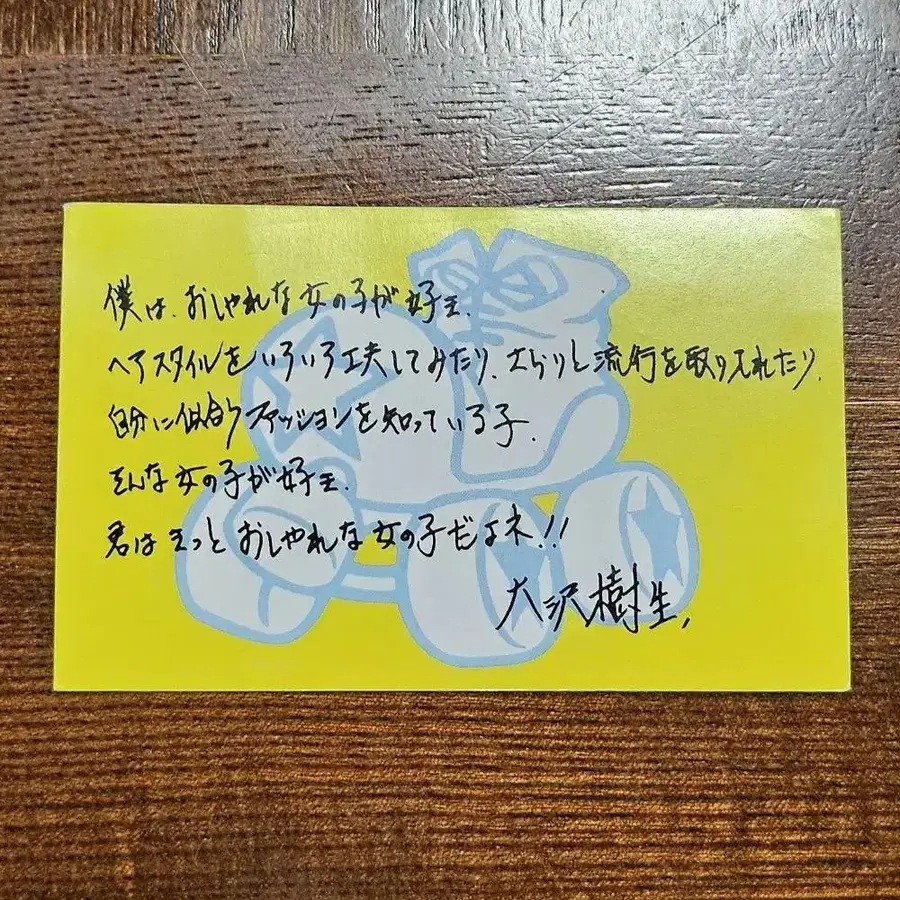 僕は、おしゃれな女の子が好き。
ヘアスタイルをいろいろ工夫してみたり、さらりと流行を取り入れたり、
自分に似合うファッションを知っている子。
そんな女の子が好き。
君はきっとおしゃれな女の子だよネ!!
大沢樹生,